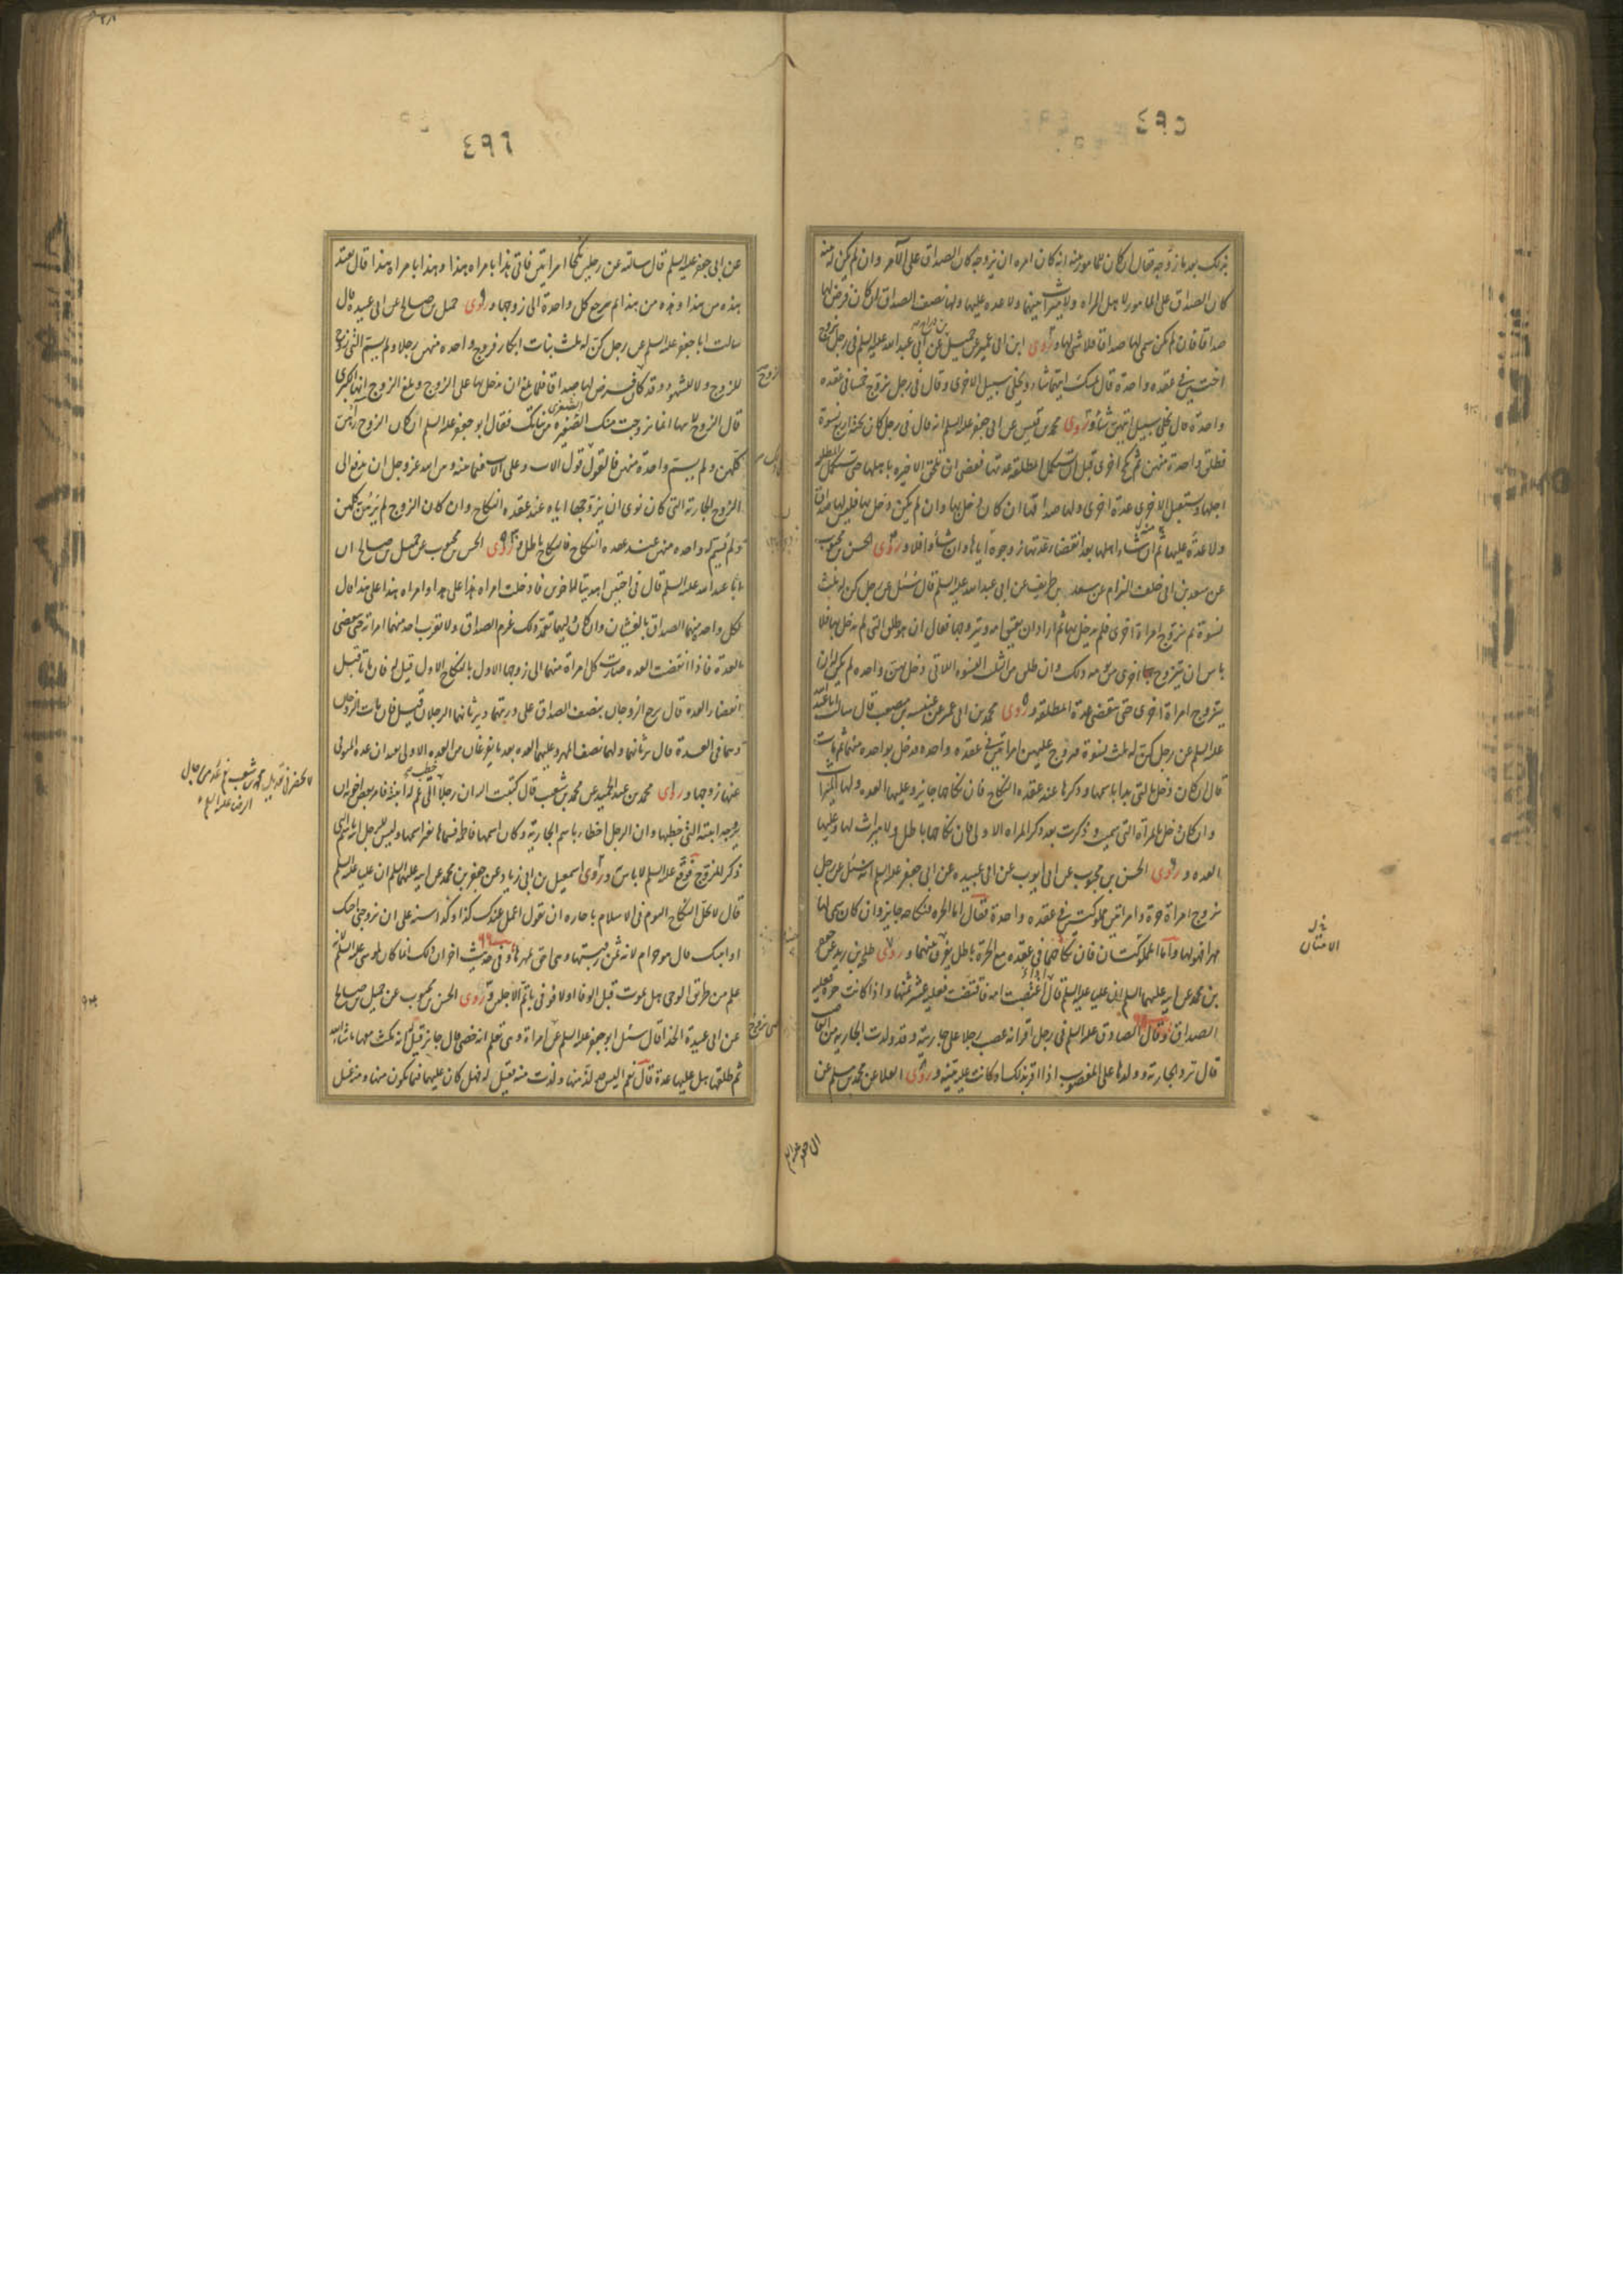 ٤٩٥
بذلك بعد ما زوجه فقال ان كان للمامور بينة انه كان امره ان يزوجه كان الصداق على الآمر وان لم يكن له بينة
كان الصداق على المامور لاهل المراة ولا ميراث بينهما ولا عدة عليها ولها نصف الصداق ان كان فرض لها
صداقا فان لم يكن سمى لها صداقا فلا شئ لها وروى ابن ابى عمير عن جميل عن ابى عبد الله عليه السلم فى رجل تزوج
اختين فى عقدة واحدة قال يمسك ايتهما شاء ويخلى سبيل الاخرى وقال فى رجل تزوج خمسا فى عقدة
واحدة قال يخلى سبيل ايتهن شاء وروى محمد بن قيس عن ابى جعفر عليه السلم انه قال فى رجل كان تحته اربع نسوة
فطلق واحدة منهن ثم نكح اخرى قبل ان تستكمل المطلقة عدتها فقضى ان تلحق الاخيرة باهلها حتى تستكمل المطلقة
اجلها وتستقبل الاخرى عدة اخرى ولها صداقها ان كان دخل بها وان لم يكن دخل بها فليس لها صداق
ولا عدة عليها ثم ان شاء اهلها بعد انقضاء عدتها زوجوه اياها وان شاؤا فلا وروى الحسن بن محبوب
عن سعد بن ابى خلف الزام عن سعد بن طريف عن ابى عبد الله عليه السلم قال سئل عن رجل كن له ثلث
نسوة ثم تزوج امراة اخرى فلم يدخل بها ثم اراد ان يعتق امة ويتزوجها فقال ان هو طلق التى لم يدخل بها فلا
باس ان يتزوج اخرى من يومه ذلك وان طلق من الثلث النسوة اللاتى دخل بهن واحدة لم يكن له ان
يتزوج امراة اخرى حتى تنقضى عدة المطلقة وروى محمد بن ابى عمير عن عنبسة بن مصعب قال سالت ابا عبد الله
عليه السلم عن رجل كن له ثلث نسوة فتزوج عليهن امراتين فى عقدة واحدة فدخل بواحدة منهما ثم مات
قال ان كان دخل بالتى بدا باسمها وذكرها عند عقدة النكاح فان نكاحها جايز وعليها العدة ولها الميراث
وان كان دخل بالمراة التى سميت وذكرت بعد ذكر المراة الاولى فان نكاحها باطل ولا ميراث لها وعليها
العدة وروى الحسن بن محبوب عن ابى ايوب عن ابى عبيدة عن ابى جعفر عليه السلم انه سئل عن رجل
تزوج امراة حرة وامراتين مملوكتين فى عقدة واحدة فقال اما الحرة فنكاحها جايز وان كان سمى لها
مهرا فهو لها واما المملوكتان فان نكاحهما فى عقدة مع الحرة باطل يفرق بينهما وروى طلحة بن زيد عن جعفر
بن محمد عن ابيه عليهما السلم ان عليا عليه السلم قال اذا اغتصبت امة فاقتضت فعليه عشر ثمنها واذا كانت حرة فعليه
الصداق وقال الصادق عليه السلم فى رجل اقر انه غصب رجلا على جاريته وقد ولدت الجارية من الغاصب
قال ترد الجارية وولدها على المغصوب اذا اقر بذلك او كانت عليه بينة وروى العلا عن محمد بن مسلم عن
٤٩٦
عن ابى جعفر عليه السلم قال سالته عن رجلين نكحا امراتين فاتى هذا بامراة هذا وهذا بامراة هذا قال تعتد
هذه من هذا وهذه من هذا ثم يرجع كل واحدة الى زوجها وروى جميل بن صالح عن ابى عبيدة قال
سالت ابا جعفر عليه السلم عن رجل كن له ثلث بنات ابكار فزوج واحدة منهن رجلا ولم يسم التى زوج
للزوج ولا للشهود وقد كان الزوج فرض لها صداقا فلما بلغ ان يدخل بها على الزوج وبلغ الزوج انها الكبرى
قال الزوج لابيها انما تزوجت منك الصغيرة من بناتك فقال ابو جعفر عليه السلم ان كان الزوج راهن
كلهن ولم يسم واحدة منهن فالقول قول الاب وعلى الاب فيما بينه وبين الله عز وجل ان يدفع الى
الزوج الجارية التى كان نوى ان يزوجها اياه عند عقدة النكاح وان كان الزوج لم يرهن كلهن
ولم يسم له واحدة منهن عند عقدة النكاح فالنكاح باطل وروى الحسن بن محبوب عن جميل بن صالح ان
ابا عبد الله عليه السلم قال فى اختين اهديتا لاخوين فادخلت امراة هذا على هذا وامراة هذا على هذا قال
لكل واحدة منهما الصداق بالغشيان وان كان وليهما تعمد ذلك غرم الصداق ولا يقرب احد منهما امراته حتى تنقضى
العدة فاذا انقضت العدة صارت كل امراة منهما الى زوجها الاول بالنكاح الاول قيل له فان ماتتا قبل
انقضاء العدة قال يرجع الزوجان بنصف الصداق على ورثتهما ويرثانهما الرجلان قيل فان مات الزوجان
وهما فى العدة قال ترثانهما ولهما نصف المهر وعليهما العدة بعد ما تفرغان من العدة الاولى تعتدان عدة المتوفى
عنها زوجها وروى محمد بن عبد الحميد عن محمد بن شعيب قال كتبت اليه ان رجلا خطب الى عم له ابنته فامر بعض اخوانه ان
يزوجه ابنته التى خطبها وان الرجل اخطا باسم الجارية وكان اسمها فاطمة فسماها بغير اسمها وليس للرجل ابنة باسم التى
ذكر للزوج فوقع عليه السلم لا باس وروى اسمعيل بن ابى زياد عن جعفر بن محمد عن ابيه عليهما السلم ان عليا عليه السلم
قال لا يحل النكاح اليوم فى الاسلام باجارة ان تقول اعمل عندك كذا وكذا سنة على ان تزوجنى اختك
او ابنتك قال هو حرام لانه ثمن رقبتها وهى احق بمهرها وفى حديث اخر ان ذلك انما كان لموسى عليه السلم لانه
علم من طريق الوحى هل يموت قبل الوفا اولا فوفى باتم الاجلين وروى الحسن بن محبوب عن جميل بن صالح
عن ابى عبيدة الحذا قال سئل ابو جعفر عليه السلم عن امراة وهى تعلم انه خصى قال جايز قيل له انه مكث معها ما شاء الله
ثم طلقها هل عليها عدة قال نعم اليس لذ منها ولذت منه فقيل له فهل كان عليها فيما يكون منها ومنه غسل